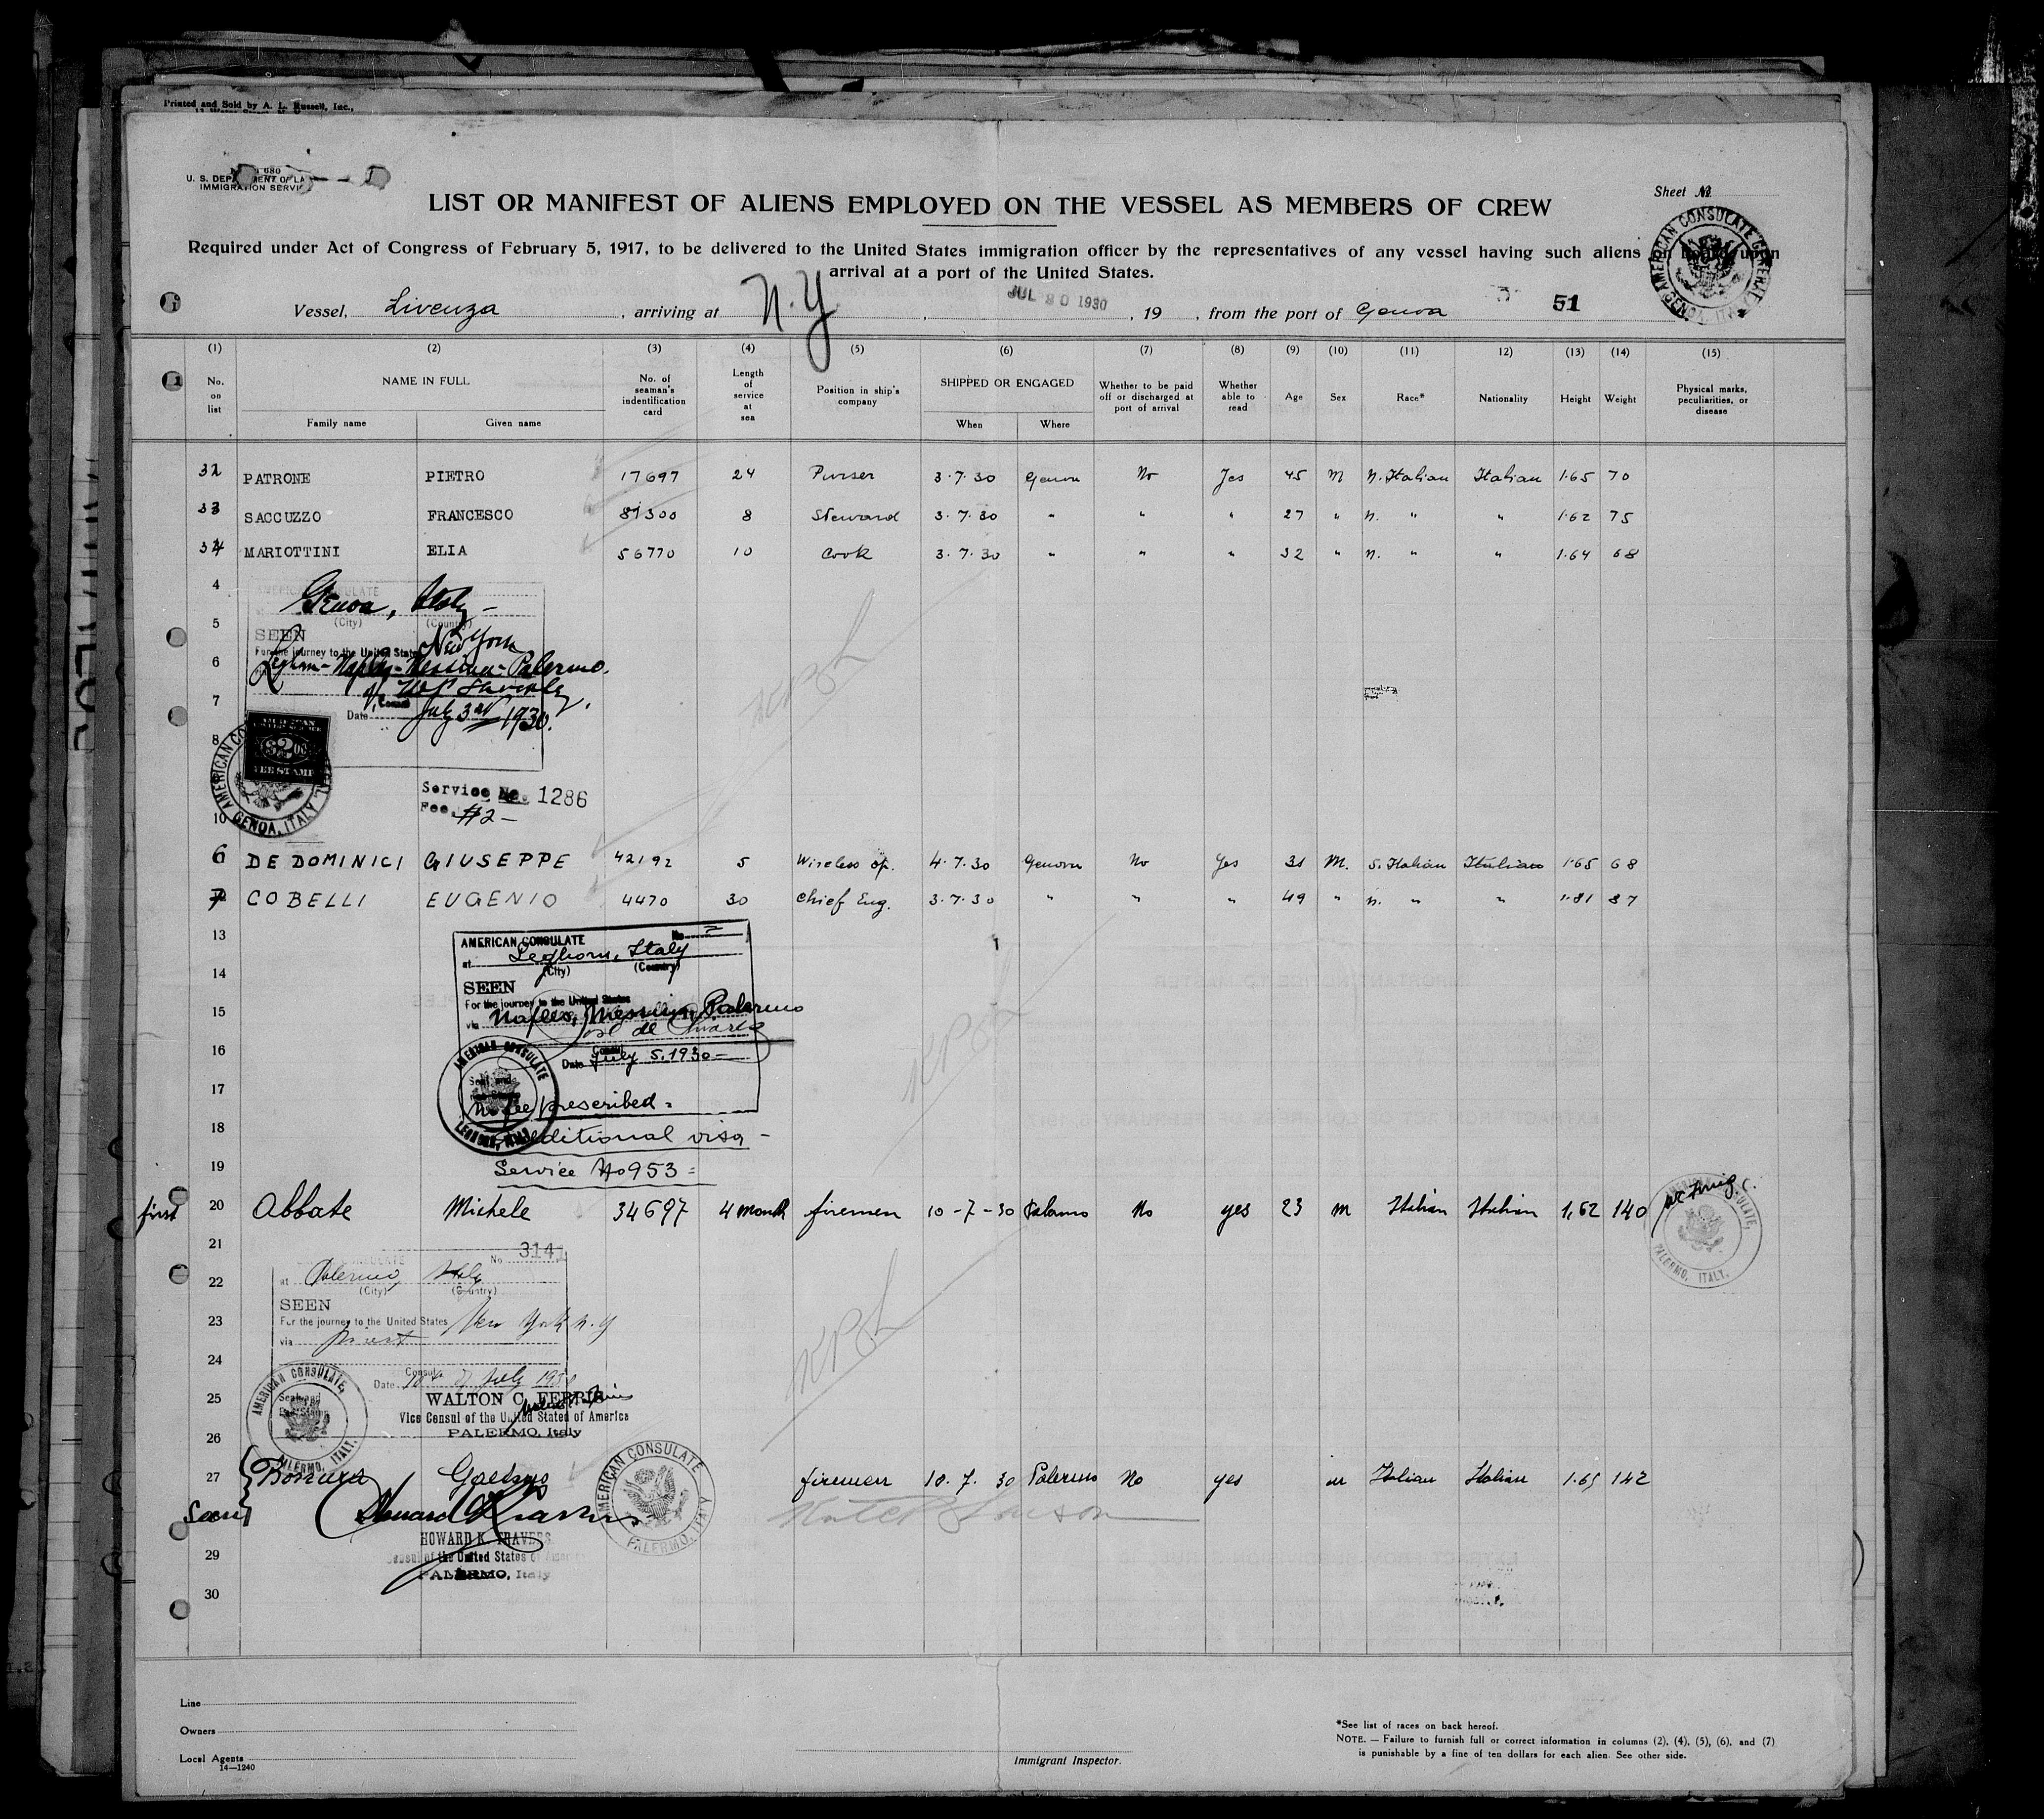 Printed and Sold by A. L. Russell, Inc.,
680
U. S. DEPARTMENT OF LA
IMMIGRATION SERVI
Sheet No
LIST OR MANIFEST OF ALIENS EMPLOYED ON THE VESSEL AS MEMBERS OF CREW
Required under Act of Congress of February 5, 1917, to be delivered to the United States immigration officer by the representatives of any vessel having such aliens on board upon
arrival at a port of the United States.
AMERICAN CONSULATE GENERAL GENOA, ITALY
Vessel, Livenza, arriving at N.Y, JUL 30 1930, 19 , from the port of Genova 51
(1) (2) (3) (4) (5) (6) (7) (8) (9) (10) (11) 12) (13) (14) (15)
No. on list NAME IN FULL Family name Given name No. of seaman's indentification card Length of service at sea Position in ship's company SHIPPED OR ENGAGED When Where Whether to be paid off or discharged at port of arrival Whether able to read Age Sex Race* Nationality Height Weight Physical marks, peculiarities, or disease
32 PATRONE PIETRO 17697 24 Purser 3.7.30 Genova No Yes 45 M N. Italian Italian 1.65 70
33 SACCUZZO FRANCESCO 81300 8 Steward 3.7.30 " " " 27 " N. " " 1.62 75
34 MARIOTTINI ELIA 56770 10 Cook 3.7.30 " " " 32 " N. " " 1.64 68
4
AMERICAN CONSULATE
Genoa, Italy -
5
(City) (Country)
SEEN New York
For the journey to the United States
6
Leghorn - Naples - Messina - Palermo.
7
Consul
Date July 3rd 1930.
8
$2.00
FEE STAMP
AMERICAN CONSULATE GENERAL GENOA, ITALY
Service No. 1286
Fee $2 -
10
6 DE DOMINICI GIUSEPPE 42192 5 Wireless op. 4.7.30 Genova No Yes 31 M. S. Italian Italian 1.65 68
7 COBELLI EUGENIO 4470 30 Chief Eng. 3.7.30 " " " 49 " N. " " 1.81 87
13
AMERICAN CONSULATE No
at Leghorn, Italy
14
(City) (Country)
SEEN
For the journey to the United States
15
via Naples, Messina, Palermo
16
Consul
Date July 5, 1930 -
17
AMERICAN CONSULATE LEGHORN, ITALY
No fee prescribed =
18
additional visa -
19
Service No 953 =
first 20 Abbate Michele 34697 4 month firemen 10-7-30 Palermo No yes 23 m Italian Italian 1,62 140
AMERICAN CONSULATE PALERMO, ITALY.
21
No 3141
22
at Palermo, Italy
(City) (Country)
SEEN
23
For the journey to the United States New York N.Y
via direct
24
Consul
Date 10th of July 1930
25
AMERICAN CONSULATE, PALERMO, ITALY.
WALTON C. FERRIS
Vice Consul of the United Stated of America
PALERMO, Italy
26
27 Bonura Gaetano firemen 10.7.30 Palermo No yes m Italian Italian 1.65 142
Seen Howard K Travers
AMERICAN CONSULATE PALERMO, ITALY
HOWARD K. TRAVERS
29
Consul of the United States of America
PALERMO, Italy
30
Line
Owners
Local Agents
14—1240
Immigrant Inspector.
*See list of races on back hereof.
NOTE. — Failure to furnish full or correct information in columns (2), (4), (5), (6), and (7)
is punishable by a fine of ten dollars for each alien. See other side.